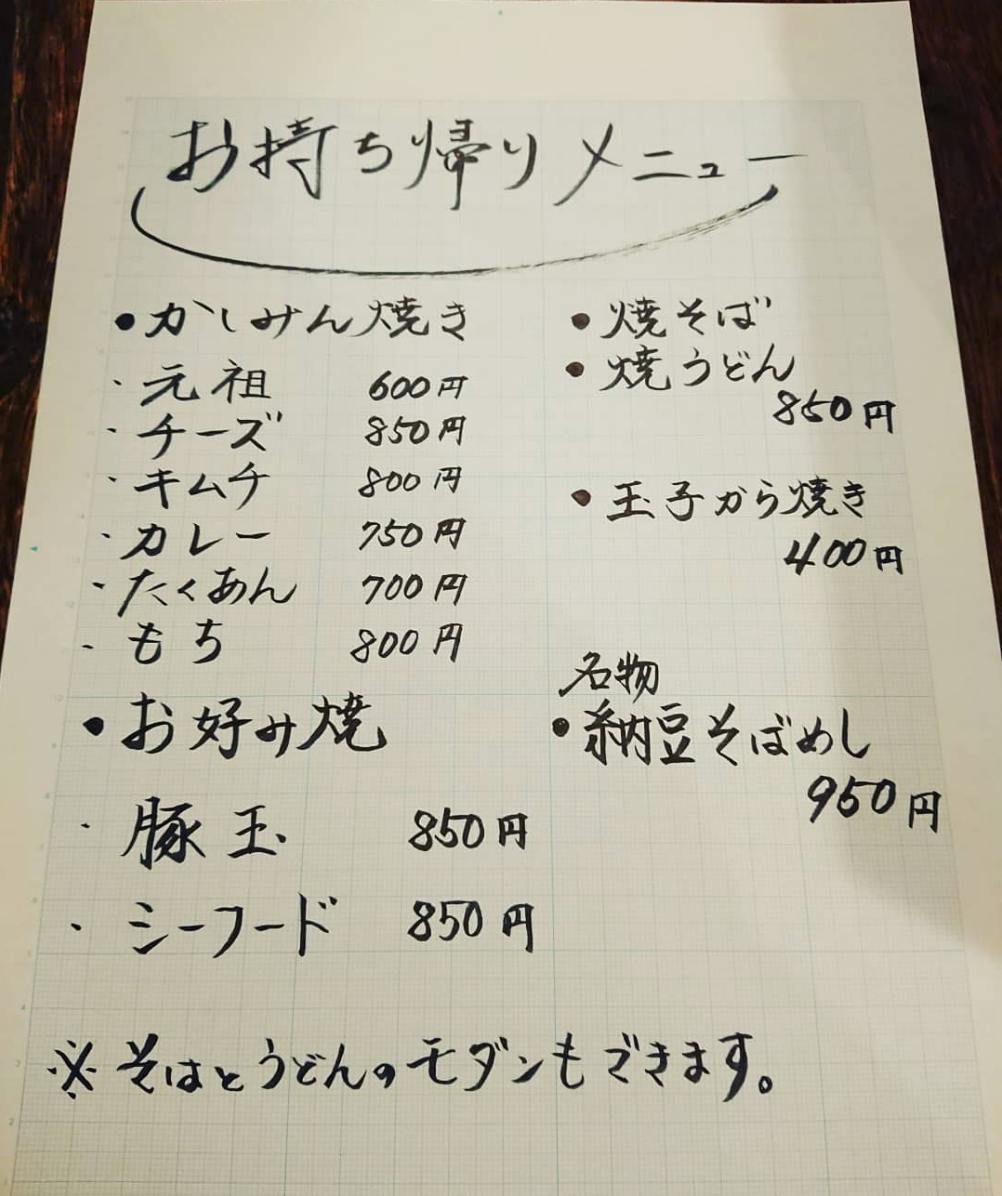 お持ち帰りメニュー
•かしみん焼き
・元祖 600円
・チーズ 850円
・キムチ 800円
・カレー 750円
・たくあん 700円
・もち 800円
•お好み焼
・豚玉 850円
・シーフード 850円
•焼そば
•焼うどん
850円
•玉子から焼き
400円
名物
•納豆そばめし
950円
※そばとうどんのモダンもできます。